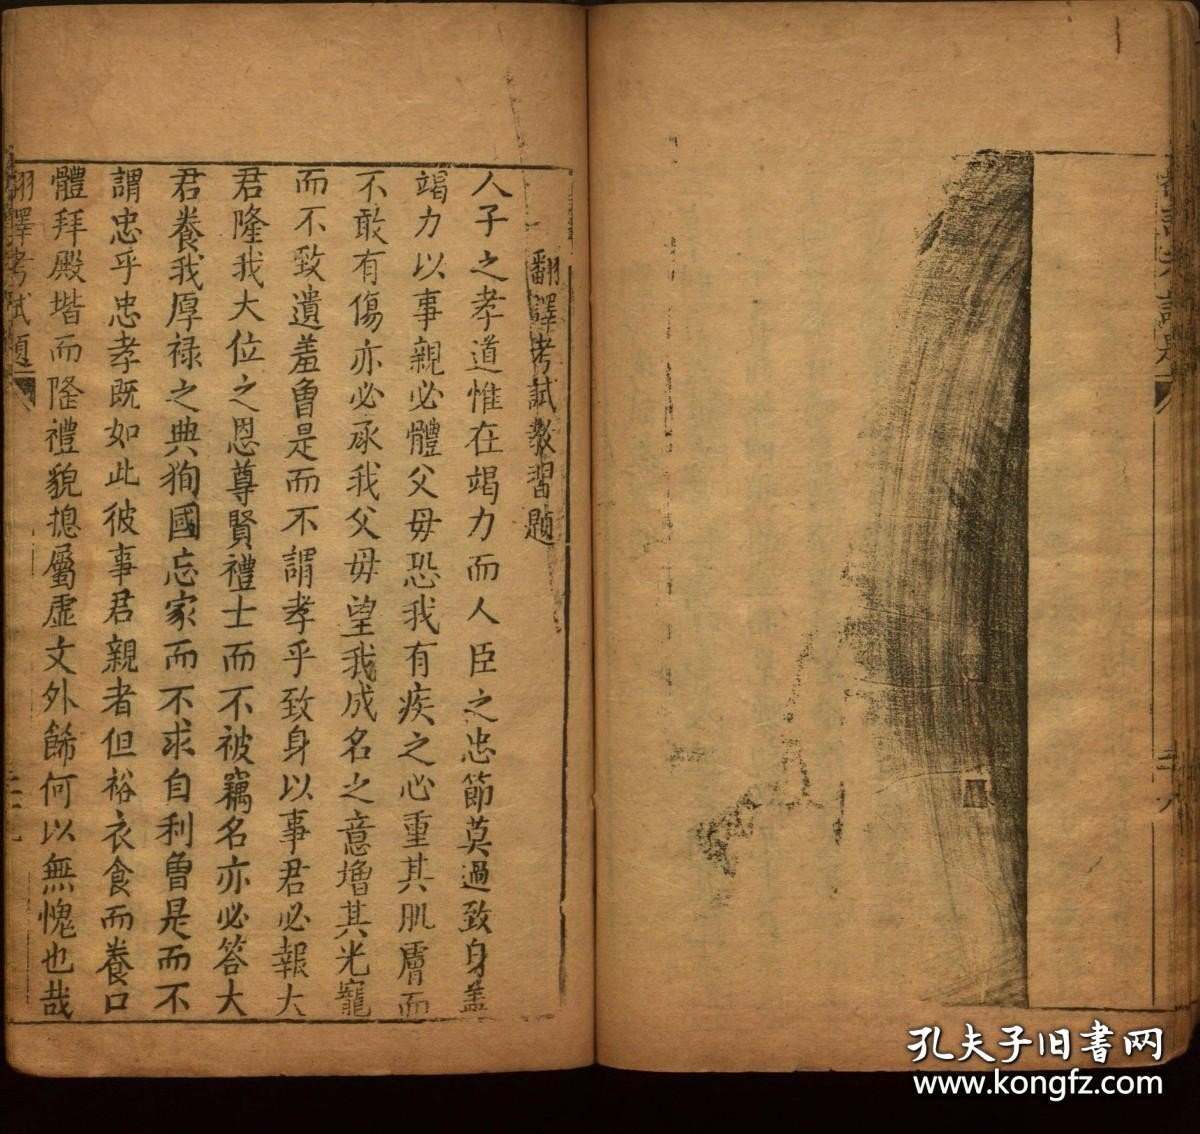 翻譯考試題
二十八
翻譯考試教習題
人子之孝道惟在竭力而人臣之忠節莫過致身盖
竭力以事親必體父母恐我有疾之心重其肌膚而
不敢有傷亦必承我父毋望我成名之意增其光寵
而不致遺羞曾是而不謂孝乎致身以事君必報大
君隆我大位之恩尊賢禮士而不被竊名亦必答大
君養我厚禄之典狥國忘家而不求自利曾是而不
謂忠乎忠孝既如此彼事君親者但裕衣食而養口
體拜殿堦而隆禮貌揔屬虛文外餙何以無愧也哉
翻譯考試題
二十九
孔夫子旧书网
www.kongfz.com